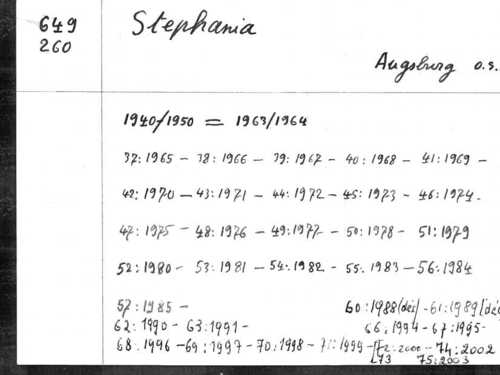 649
260
Stephania
Augsburg o.s.
1940/1950 = 1963/1964
37:1965 - 38:1966 - 39:1967 - 40:1968 - 41:1969 -
42:1970 - 43:1971 - 44:1972 - 45:1973 - 46:1974 -
47:1975 - 48:1976 - 49:1977 - 50:1978 - 51:1979
52:1980 - 53:1981 - 54:1982 - 55:1983 - 56:1984
57:1985 - 60:1988(dei) - 61:1989(dei
62:1990 - 63:1991 - 66:1994 - 67:1995 -
68:1996 - 69:1997 - 70:1998 - 71:1999 - 72:2000 - 74:2002
73 75:2003